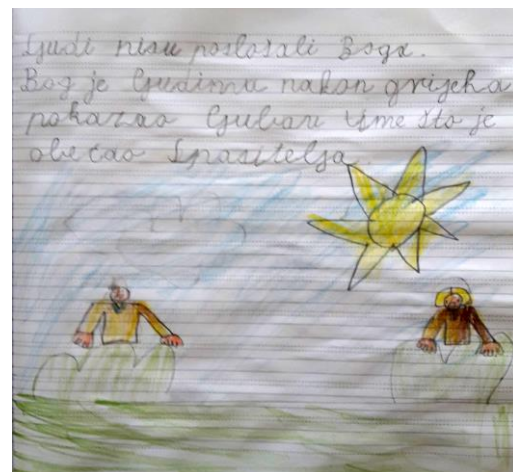 Ljudi nisu poslošali Boga.
Bog je ljudima nakon grijeha
pokazao ljubav time što je
obećao Spasitelja.